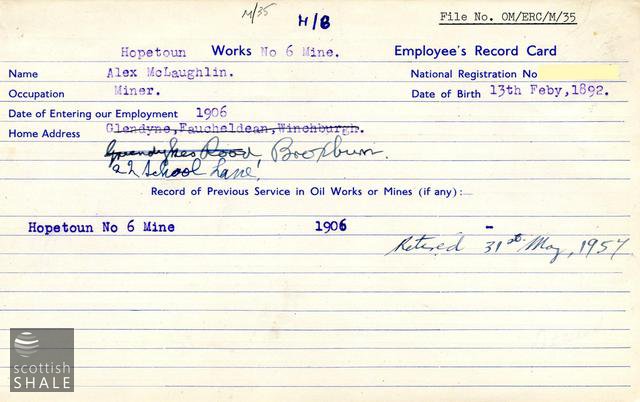 M/35
H/6
File No. OM/ERC/M/35
Hopetoun Works No 6 Mine. Employee's Record Card
Name Alex McLaughlin. National Registration No
Occupation Miner. Date of Birth 13th Feby,1892.
Date of Entering our Employment 1906
Home Address Glendyne,Faucheldean,Winchburgh.
Greendykes Road, Broxburn.
22 School Lane,
Record of Previous Service in Oil Works or Mines (if any):—
Hopetoun No 6 Mine 1906 -
Retired 31st. May, 1957
scottish
SHALE